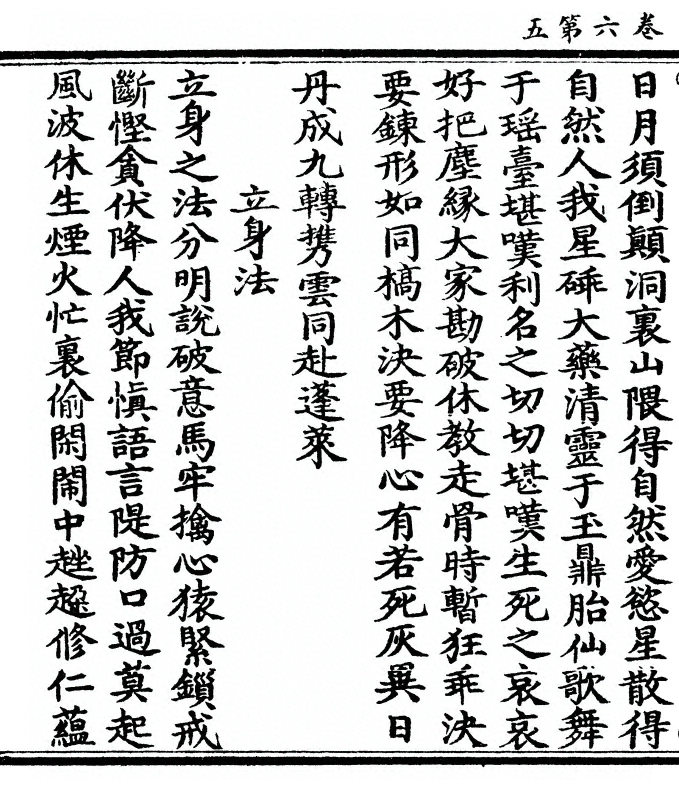 卷六第五
日月須倒顛洞裏山隈得自然愛慾星散得
自然人我星碎大藥清靈于玉鼎胎仙歌舞
于瑶臺堪嘆利名之切切堪嘆生死之哀哀
好把塵緣大家勘破休教走骨時暫狂乖決
要鍊形如同槁木決要降心有若死灰異日
丹成九轉携雲同赴蓬萊
立身法
立身之法分明說破意馬牢擒心猿緊鎖戒
斷慳貪伏降人我節愼語言隄防口過莫起
風波休生煙火忙裏偷閑鬧中趓趮修仁蘊